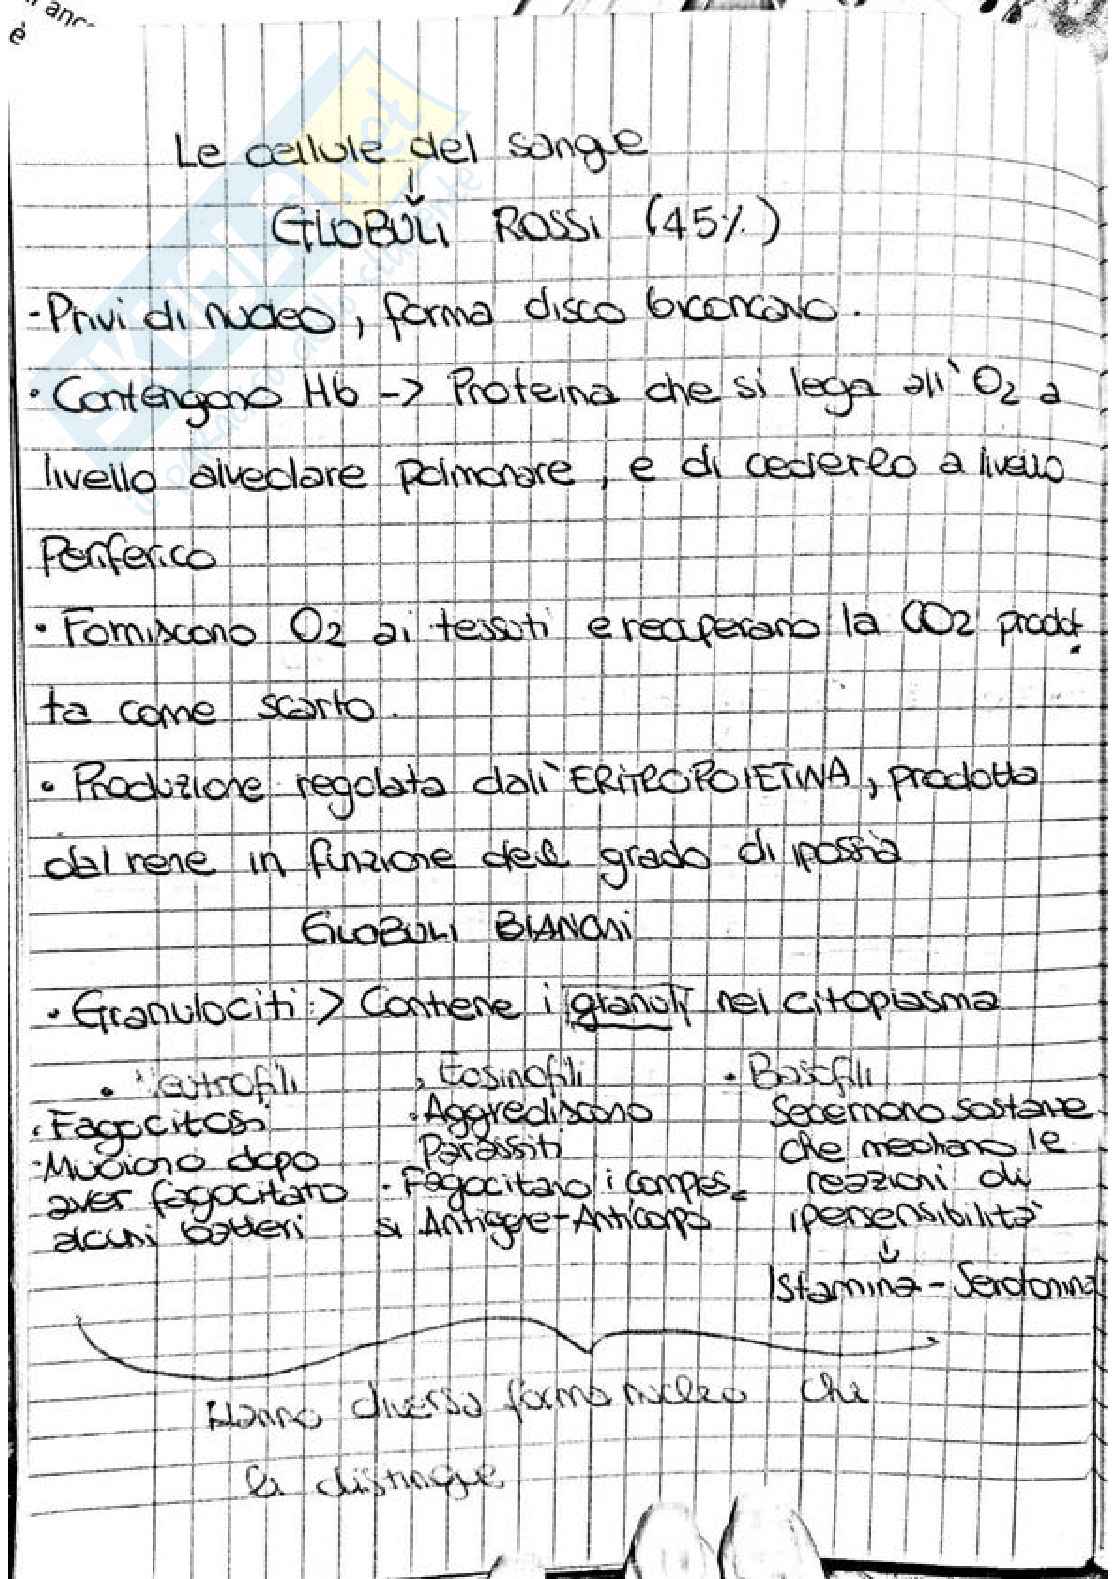 è
Le cellule del sangue
↓
GLOBULI ROSSI (45%)
- Privi di nucleo, forma disco biconcavo.
• Contengono Hb -> Proteina che si lega all'O2 a
livello alveolare polmonare, e di cederlo a livello
Periferico
• Forniscono O2 ai tessuti e recuperano la CO2 prodot
ta come scarto.
• Produzione regolata dall'ERITROPOIETINA, prodotta
dal rene in funzione del grado di ipossia
GLOBULI BIANCHI
• Granulociti :> Contiene i granuli nel citoplasma
• Neutrofili
• Fagocitosi
- Muoiono dopo
aver fagocitato
alcuni batteri
• Eosinofili
• Aggrediscono
Parassiti
- Fagocitano i comples
si Antigene-Anticorpo
• Basofili
Secernono sostanze
che mediano le
reazioni di
ipersensibilità
↓
Istamina - Serotonina
Hanno diversa forma nucleo che
li distingue